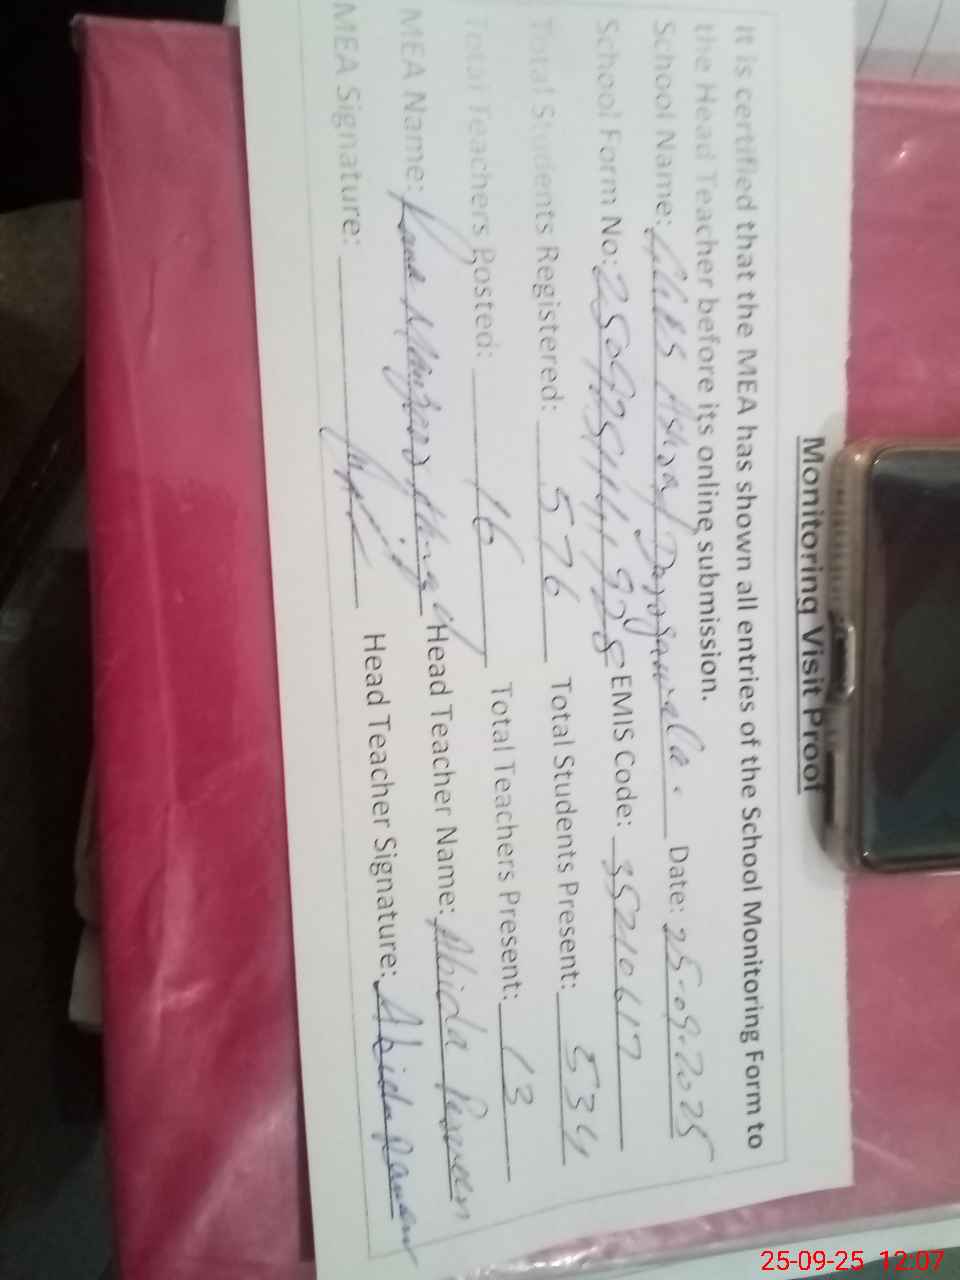 Monitoring Visit Proof
It is certified that the MEA has shown all entries of the School Monitoring Form to
the Head Teacher before its online submission.
School Name: Date: 25-09-2025
School Form No: EMIS Code: 35210617
Total Students Registered: 576 Total Students Present: 534
Total Teachers Posted: 16 Total Teachers Present: 13
MEA Name: Rana Head Teacher Name: Abida Parveen
MEA Signature: Head Teacher Signature: Abida Parveen
25-09-25 12:07